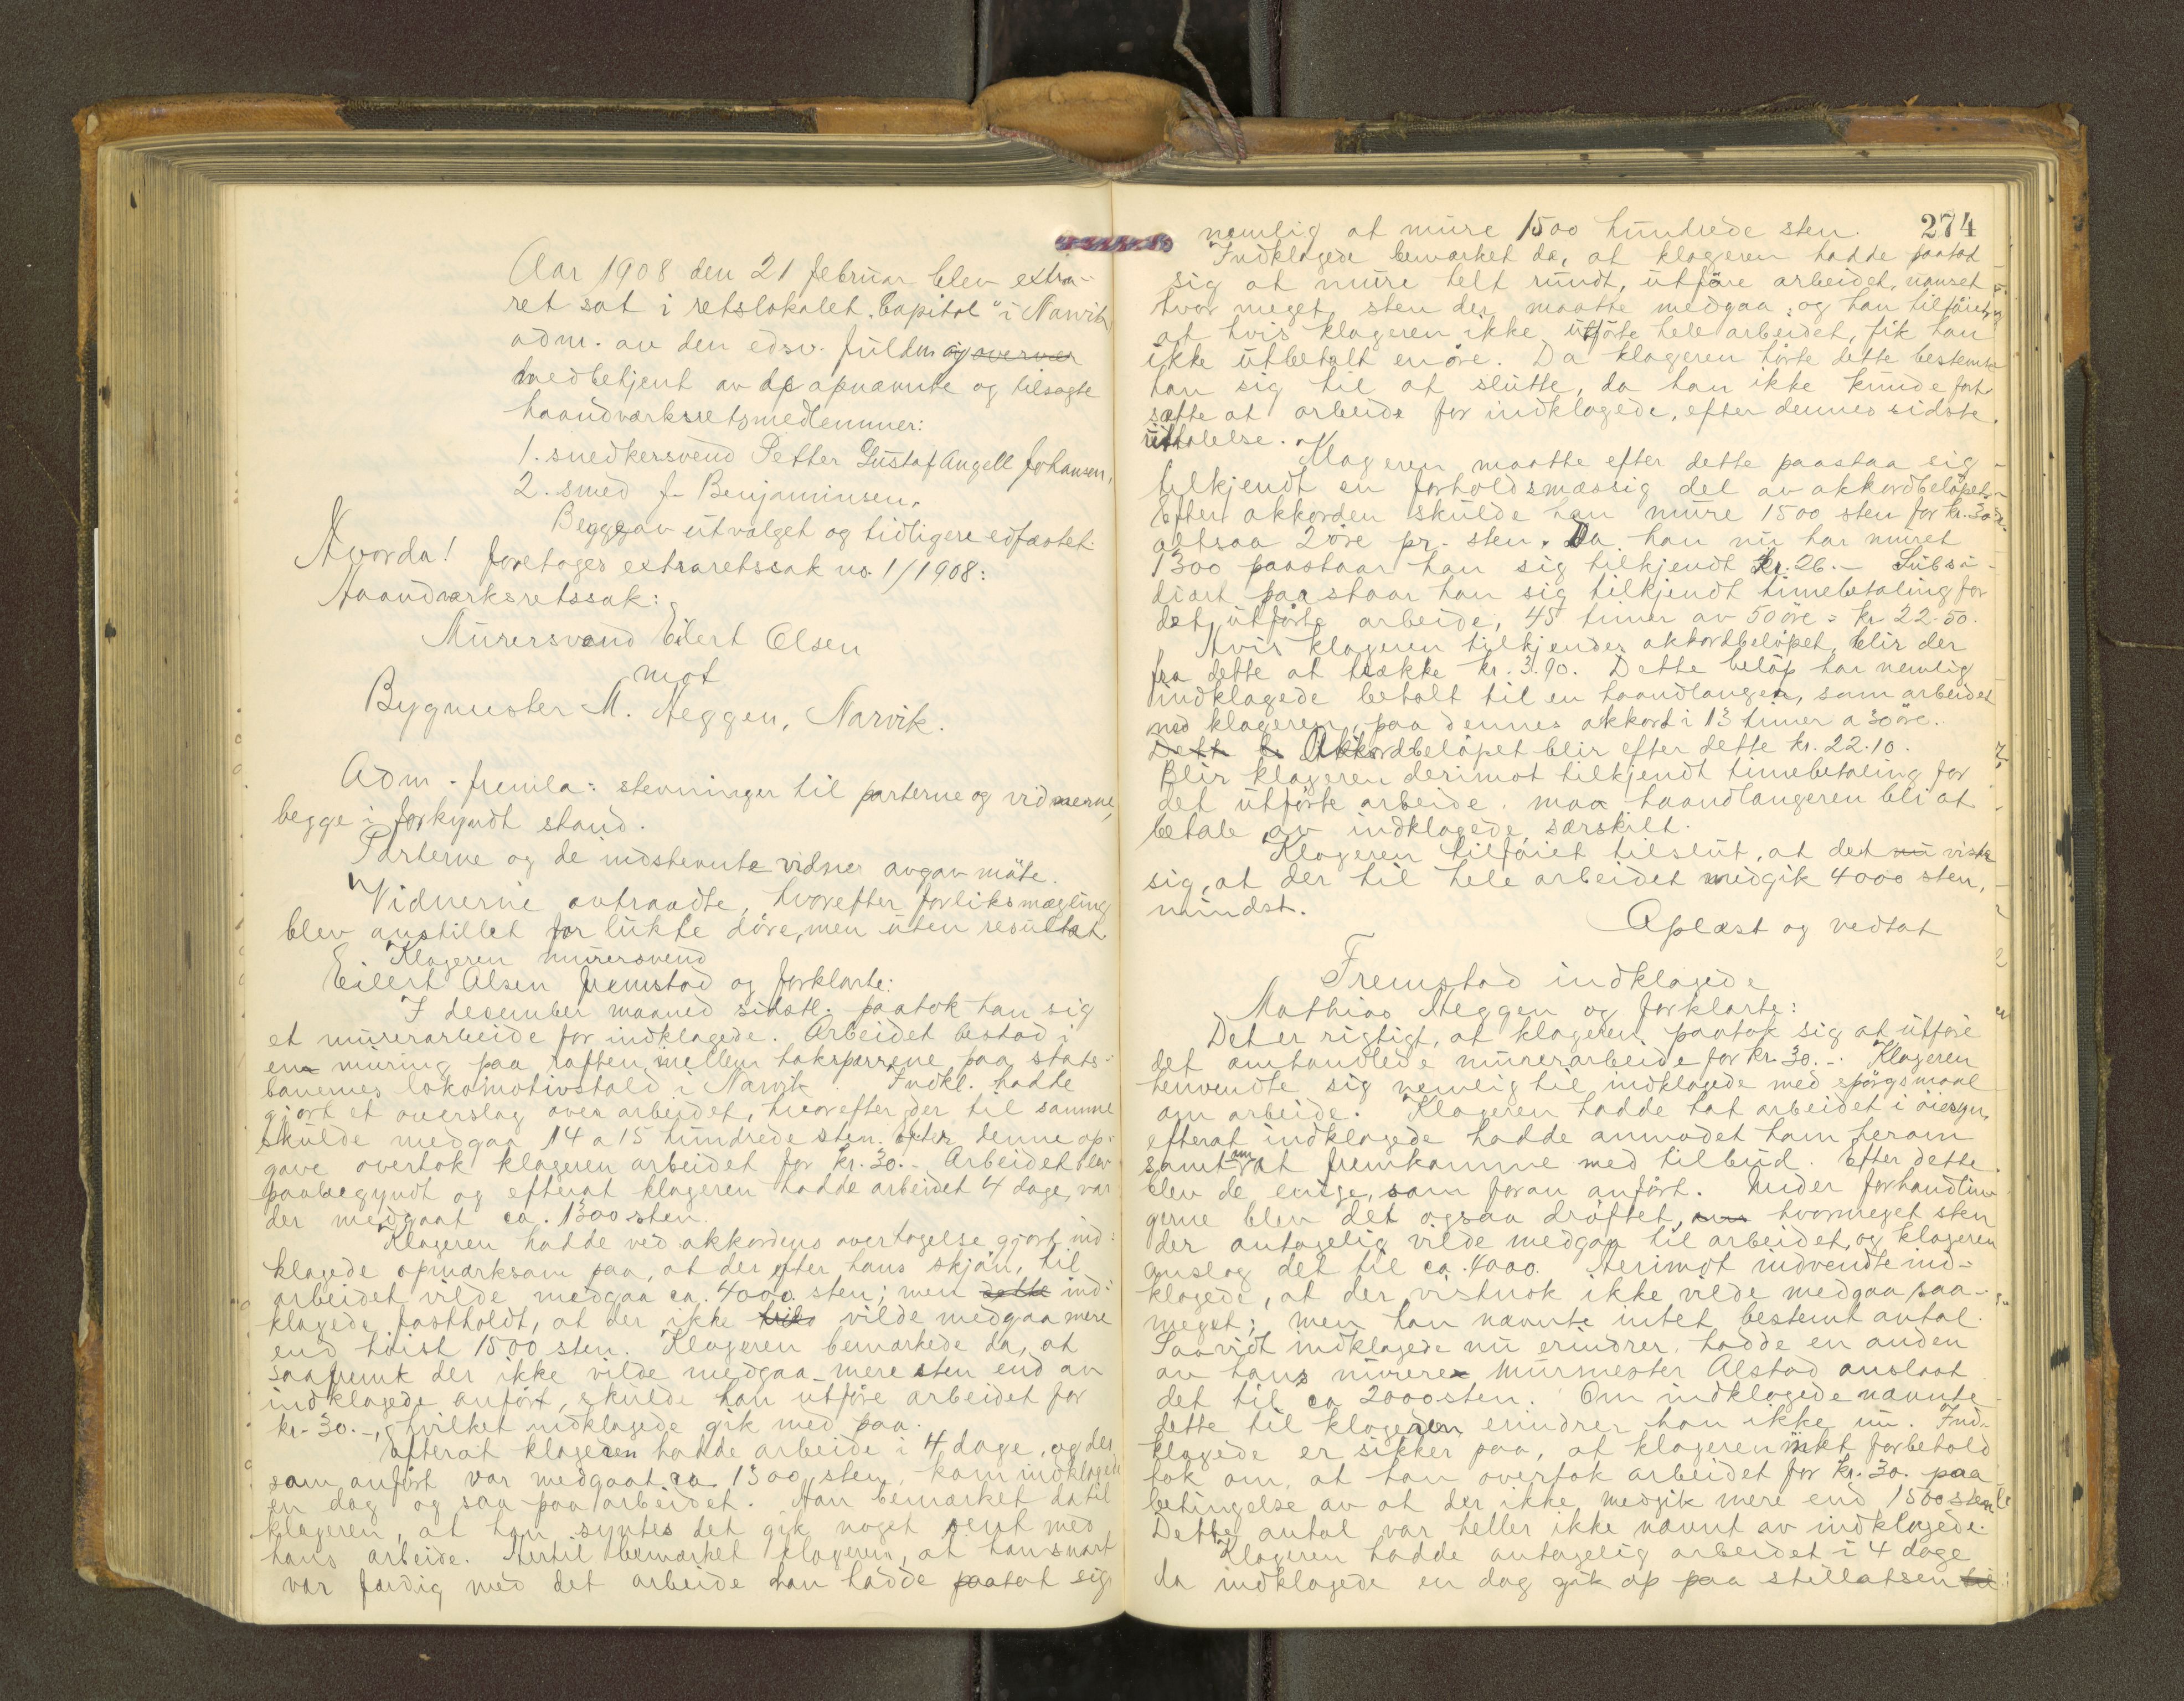 Aar 1908 den 21 februar blev extra-
ret sat i retslokalet „Capitol" i Narvik
adm. av den edsv. fuldm og overvær
medbetjent av de opnævnte og tilsagte
haandværksretsmedlemmer:
1. snedkersvend Petter Gustaf Angell Johansen,
2. smed J. Benjaminsen,
Begge av utvalget og tidligere edfæstet.
Hvorda! foretoges extraretssak no. 1/1908:
Haandværksretssak:
Murersvend Eilert Olsen
mot
Bygmester M. Heggen, Narvik.
Adm. fremla: stevninger til parterne og vidnerne,
begge i forkyndt stand.
Parterne og de indstevnte vidner avgav møte.
Vidnerne avtraadte, hvorefter forliksmægling
blev anstillet for lukte døre, men uten resultat
Klageren murersvend
Eilert Olsen fremstod og forklarte:
I december maaned sidstl. paatok han sig
et murerarbeide for indklagede. Arbeidet bestod i
en muring paa raften mellem taksparrene paa stats-
banernes lokomotivstald i Narvik. Indkl. hadde
gjort et overslag over arbeidet, hvorefter der til samme
skulde medgaa 14 a 15 hundrede sten. Efter denne op-
gave overtok klageren arbeidet for kr. 30.- Arbeidet blev
paabegyndt og efterat klageren hadde arbeidet 4 dage, var
der medgaat ca. 1300 sten.
Klageren hadde ved akkordens overtagelse gjort ind-
klagede opmerksom paa, at der efter hans skjøn, til
arbeidet vilde medgaa ca. 4000 sten; men dette ind-
klagede fastholdt, at der ikke vilde medgaa mere
end høist 1500 sten. Klageren bemærkede da, at
saafremt der ikke vilde medgaa mere sten end av
indklagede anført, skulde han utføre arbeidet for
kr. 30.-, hvilket indklagede gik med paa.
Efterat klageren hadde arbeide i 4 dage, og der
som anført var medgaat ca 1300 sten, kom indklagede
en dag og saa paa arbeidet. Han bemærket da til
klageren, at han syntes det gik noget sent med
hans arbeide. Hertil bemærket klageren, at han snart
var færdig med det arbeide han hadde paatat sig
274
nemlig at mure 1500 hundrede sten.
Indklagede bemærket da, at klageren hadde paatat
sig at mure helt rundt, utføre arbeidet, uanset
hvor meget sten der maatte medgaa; og han tilføiet,
at hvis klageren ikke utførte hele arbeidet, fik han
ikke utbetalt en øre. Da klageren hørte dette bestemte
han sig til at slutte, da han ikke kunde fort-
sætte at arbeide for indklagede, efter dennes sidste
uttalelse.
Klageren maatte efter dette paastaa sig
tilkjendt en forholdsmæssig del av akkordbeløpet.
Efter akkorden skulde han mure 1500 sten for kr. 30
altsaa 2 øre pr. sten. Da han nu har muret
1300 paastaar han sig tilkjendt kr. 26.- Subsi-
diært paastaar han sig tilkjendt timebetaling for
det utførte arbeide, 45 timer av 50 øre = kr 22.50.
Hvis klageren tilkjendes akkordbeløpet, blir der
fra dette at trække kr. 3.90. Dette beløp har nemlig
indklagede betalt til en haandlanger, som arbeidet
med klageren, paa dennes akkord i 13 timer a 30 øre.
Dette Akkordbeløpet blir efter dette kr. 22.10.
Blir klageren derimot tilkjendt timebetaling for
det utførte arbeide, maa haandlangeren bli at
betale av indklagede særskilt.
Klageren tilføiet tilslut, at det nu viste
sig, at der til hele arbeidet medgik 4000 sten,
mindst.
Oplæst og vedtat
Fremstod indklagede
Mathias Heggen og forklarte:
Det er rigtigt, at klageren paatok sig at utføre
det omhandlede murerarbeide for kr. 30.-. Klageren
henvendte sig nemlig til indklagede med spørgsmaal
om arbeide. Klageren hadde tat arbeidet i øiesyn,
efterat indklagede hadde anmodet ham herom
samt om at fremkomme med tilbud. Efter dette
blev de enige, som foran anført. Under forhandlin-
gerne blev det ogsaa drøftet, hvormeget sten
der antagelig vilde medgaa til arbeidet, og klageren
anslog det til ca. 4000. Herimot indvendte ind-
klagede, at der vistnok ikke vilde medgaa saa
meget; men han nævnte intet bestemt antal.
Saavidt indklagede nu erindrer, hadde en anden
av hans murere Murmester Alstad anslaat
det til ca 2000 sten. Om indklagede nævnte
dette til klageren erindrer han ikke nu. Ind-
klagede er sikker paa, at klageren intet forbehold
tok om, at han overtok arbeidet for kr. 30. paa
betingelse av at der ikke medgik mere end 1500 sten
Dette antal var heller ikke nævnt av indklagede.
Klageren hadde antagelig arbeidet i 4 dage
da indklagede en dag gik op paa stillatsen til